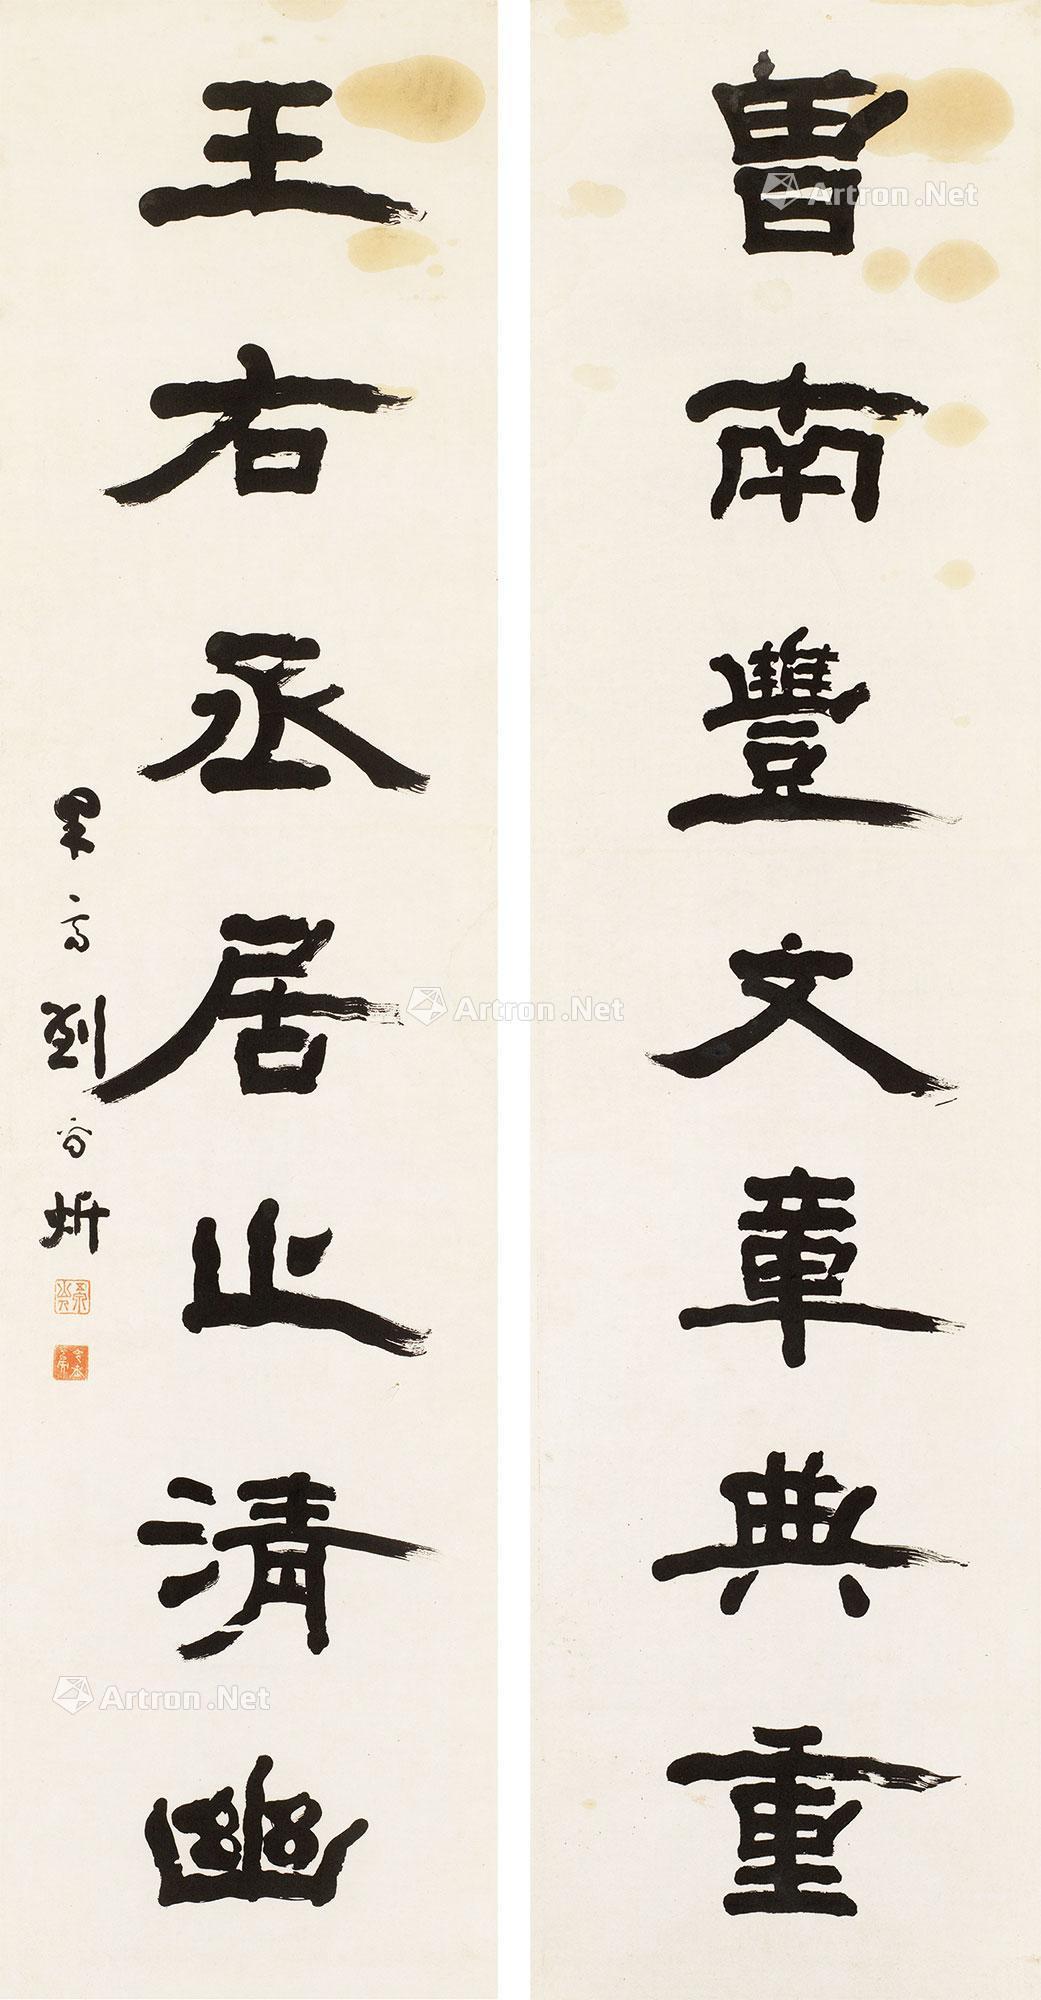 曾南豐文章典重
王右丞居止清幽
果齋劉春炘
Artron.Net
Artron.Net
Artron.Net